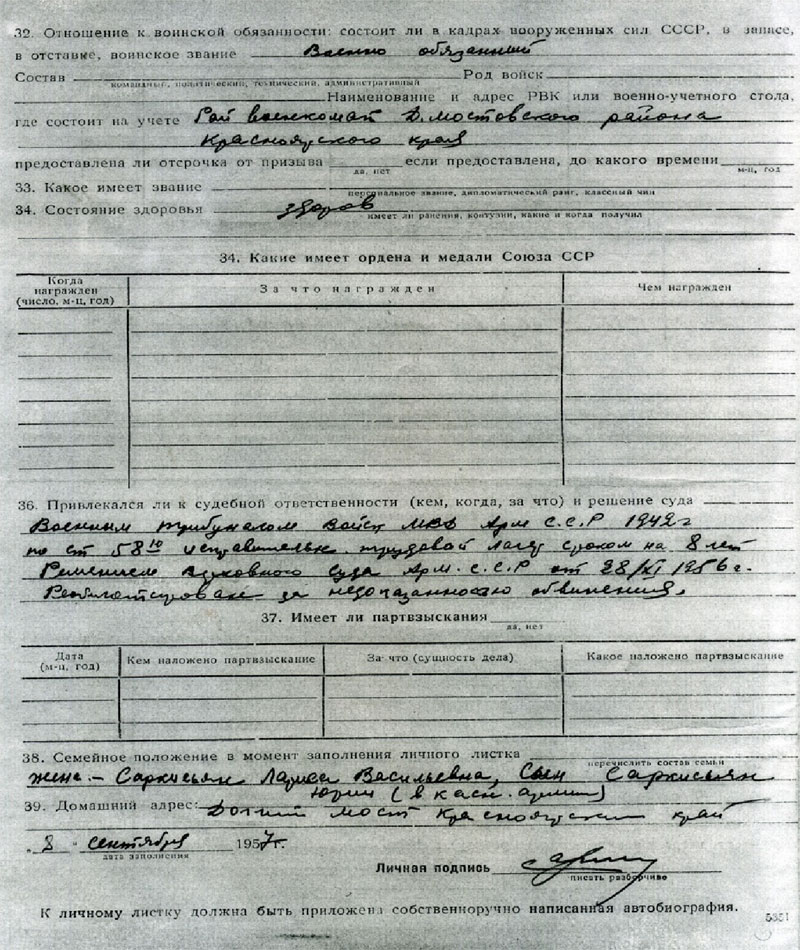 32. Отношение к воинской обязанности: состоит ли в кадрах вооруженных сил СССР, в запасе,
в отставке, воинское звание Военно обязанный
Состав Род войск
командный, политический, технический, административный
Наименование и адрес РВК или военно-учетного стола,
где состоит на учете Рай военкомат Д. Мостовского района
Красноярского края
предоставлена ли отсрочка от призыва если предоставлена, до какого времени
да, нет м-ц, год
33. Какое имеет звание
персональное звание, дипломатический ранг, классный чин
34. Состояние здоровья здоров
имеет ли ранения, контузии, какие и когда получил
34. Какие имеет ордена и медали Союза ССР
Когда награжден (число, м-ц, год) За что награжден Чем награжден
36. Привлекался ли к судебной ответственности (кем, когда, за что) и решение суда
Военным трибуналом Войск МВД Арм С.С.Р 1942 г
по ст 58¹⁰ исправительн. трудовой лагер сроком на 8 лет
Решением верховного Суда Арм. С.С.Р от 28/XI 1956 г.
за недоказанностью обвинения.
37. Имеет ли партвзыскания
да, нет
Дата (м-ц, год) Кем наложено партвзыскание За что (сущность дела) Какое наложено партвзыскание
38. Семейное положение в момент заполнения личного листка
перечислить состав семьи
жена – Саркисьян Лариса Васильевна, Сын Саркисьян
Юрий (в армии)
39. Домашний адрес: Мост Красноярский край
"8" сентября 1957 г.
дата заполнения
Личная подпись
писать разборчиво
К личному листку должна быть приложена собственноручно написанная автобиография.
5351